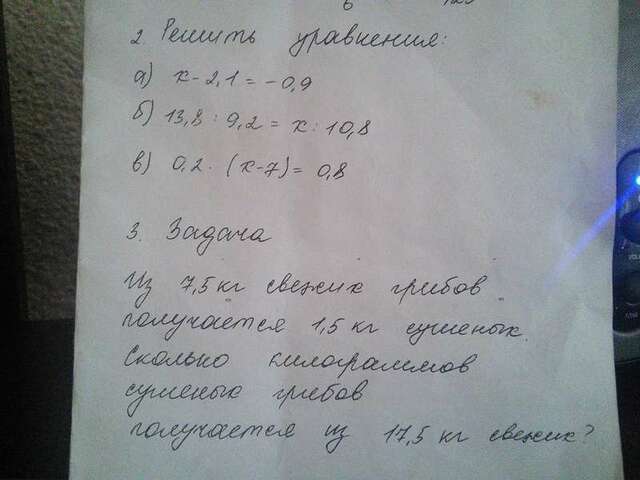 2. Решить уравнения:
а) x - 2,1 = -0,9
б) 13,8 : 9,2 = x : 10,8
в) 0,2 · (x-7) = 0,8
3. Задача
Из 7,5 кг свежих грибов
получается 1,5 кг сушеных.
Сколько килограммов
сушеных грибов
получается из 17,5 кг свежих?